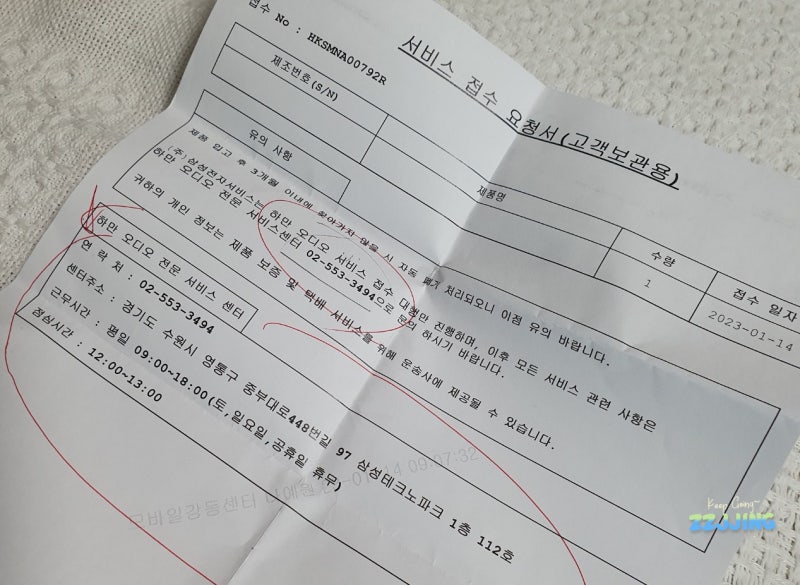 접수 No : HKSMNA00792R
서비스 접수 요청서(고객보관용)
제조번호(S/N)
제품명
수량
접수 일자
1
2023-01-14
유의 사항
제품 입고 후 3개월 이내에 찾아가지 않을 시 자동 폐기 처리되오니 이점 유의 바랍니다.
(주)삼성전자서비스는 하만 오디오 서비스 접수 대행만 진행하며, 이후 모든 서비스 관련 사항은
하만 오디오 전문 서비스센터 02-553-3494으로 문의 하시기 바랍니다.
귀하의 개인 정보는 제품 보증 및 택배 서비스를 위해 운송사에 제공될 수 있습니다.
하만 오디오 전문 서비스 센터
연 락 처 : 02-553-3494
센터주소 : 경기도 수원시 영통구 중부대로448번길 97 삼성테크노파크 1층 112호
근무시간 : 평일 09:00~18:00(토,일요일,공휴일 휴무)
점심시간 : 12:00~13:00
모바일강동센터 14 09:07:32
Keep Going~
ZZJJING